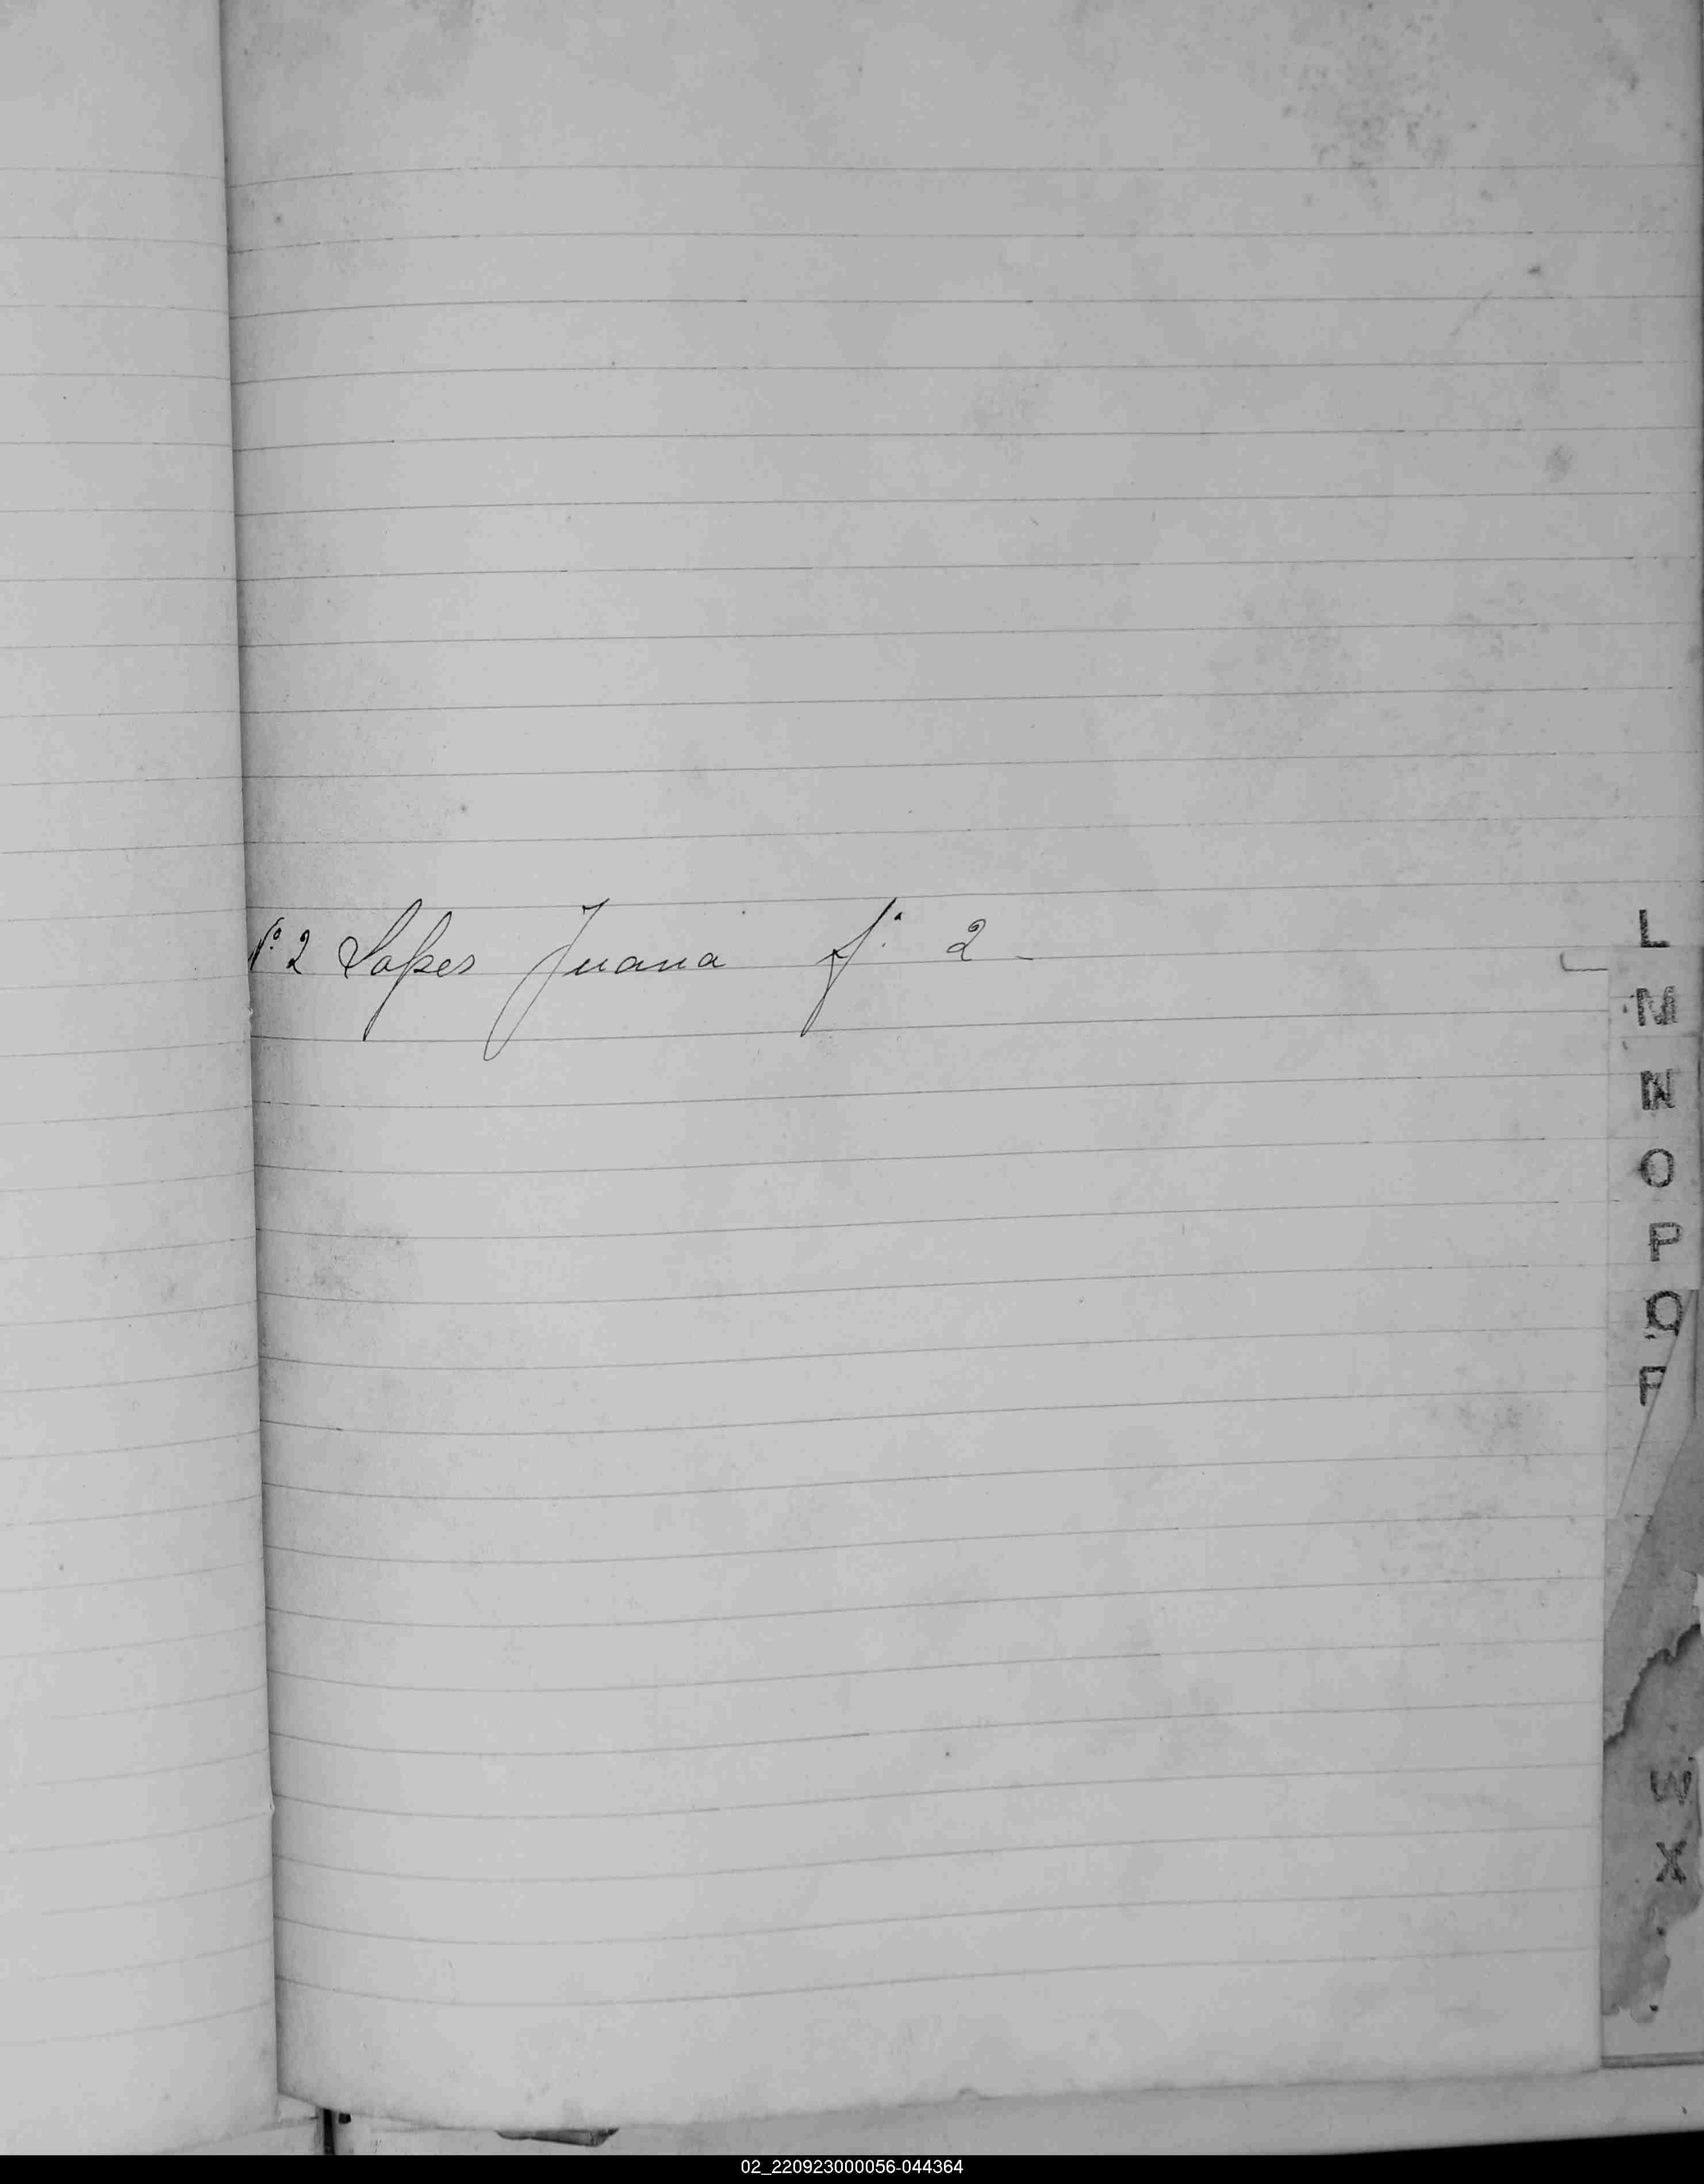 N.º 2 Lopes Juana fº 2 -
L
M
N
O
P
Q
R
W
X
02_220923000056-044364